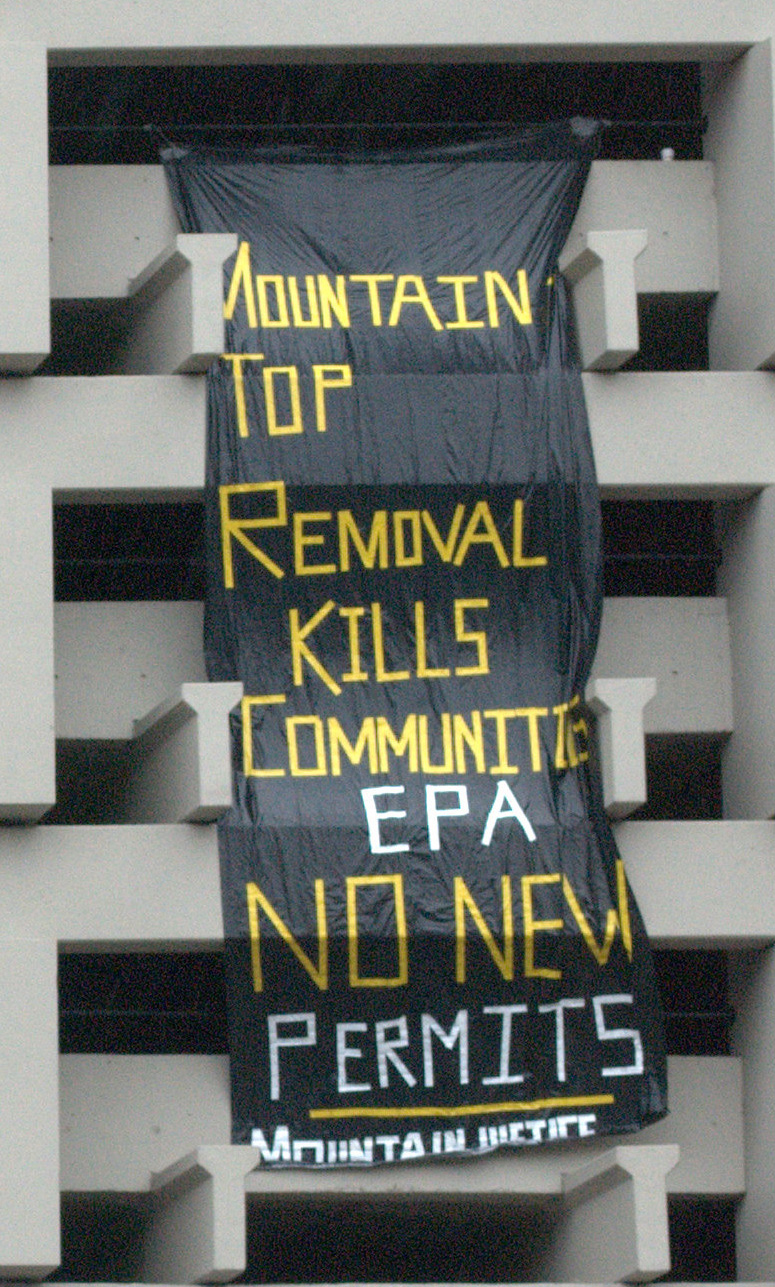 MOUNTAIN-
TOP
REMOVAL
KILLS
COMMUNITIES
EPA
NO NEW
PERMITS
MOUNTAIN JUSTICE